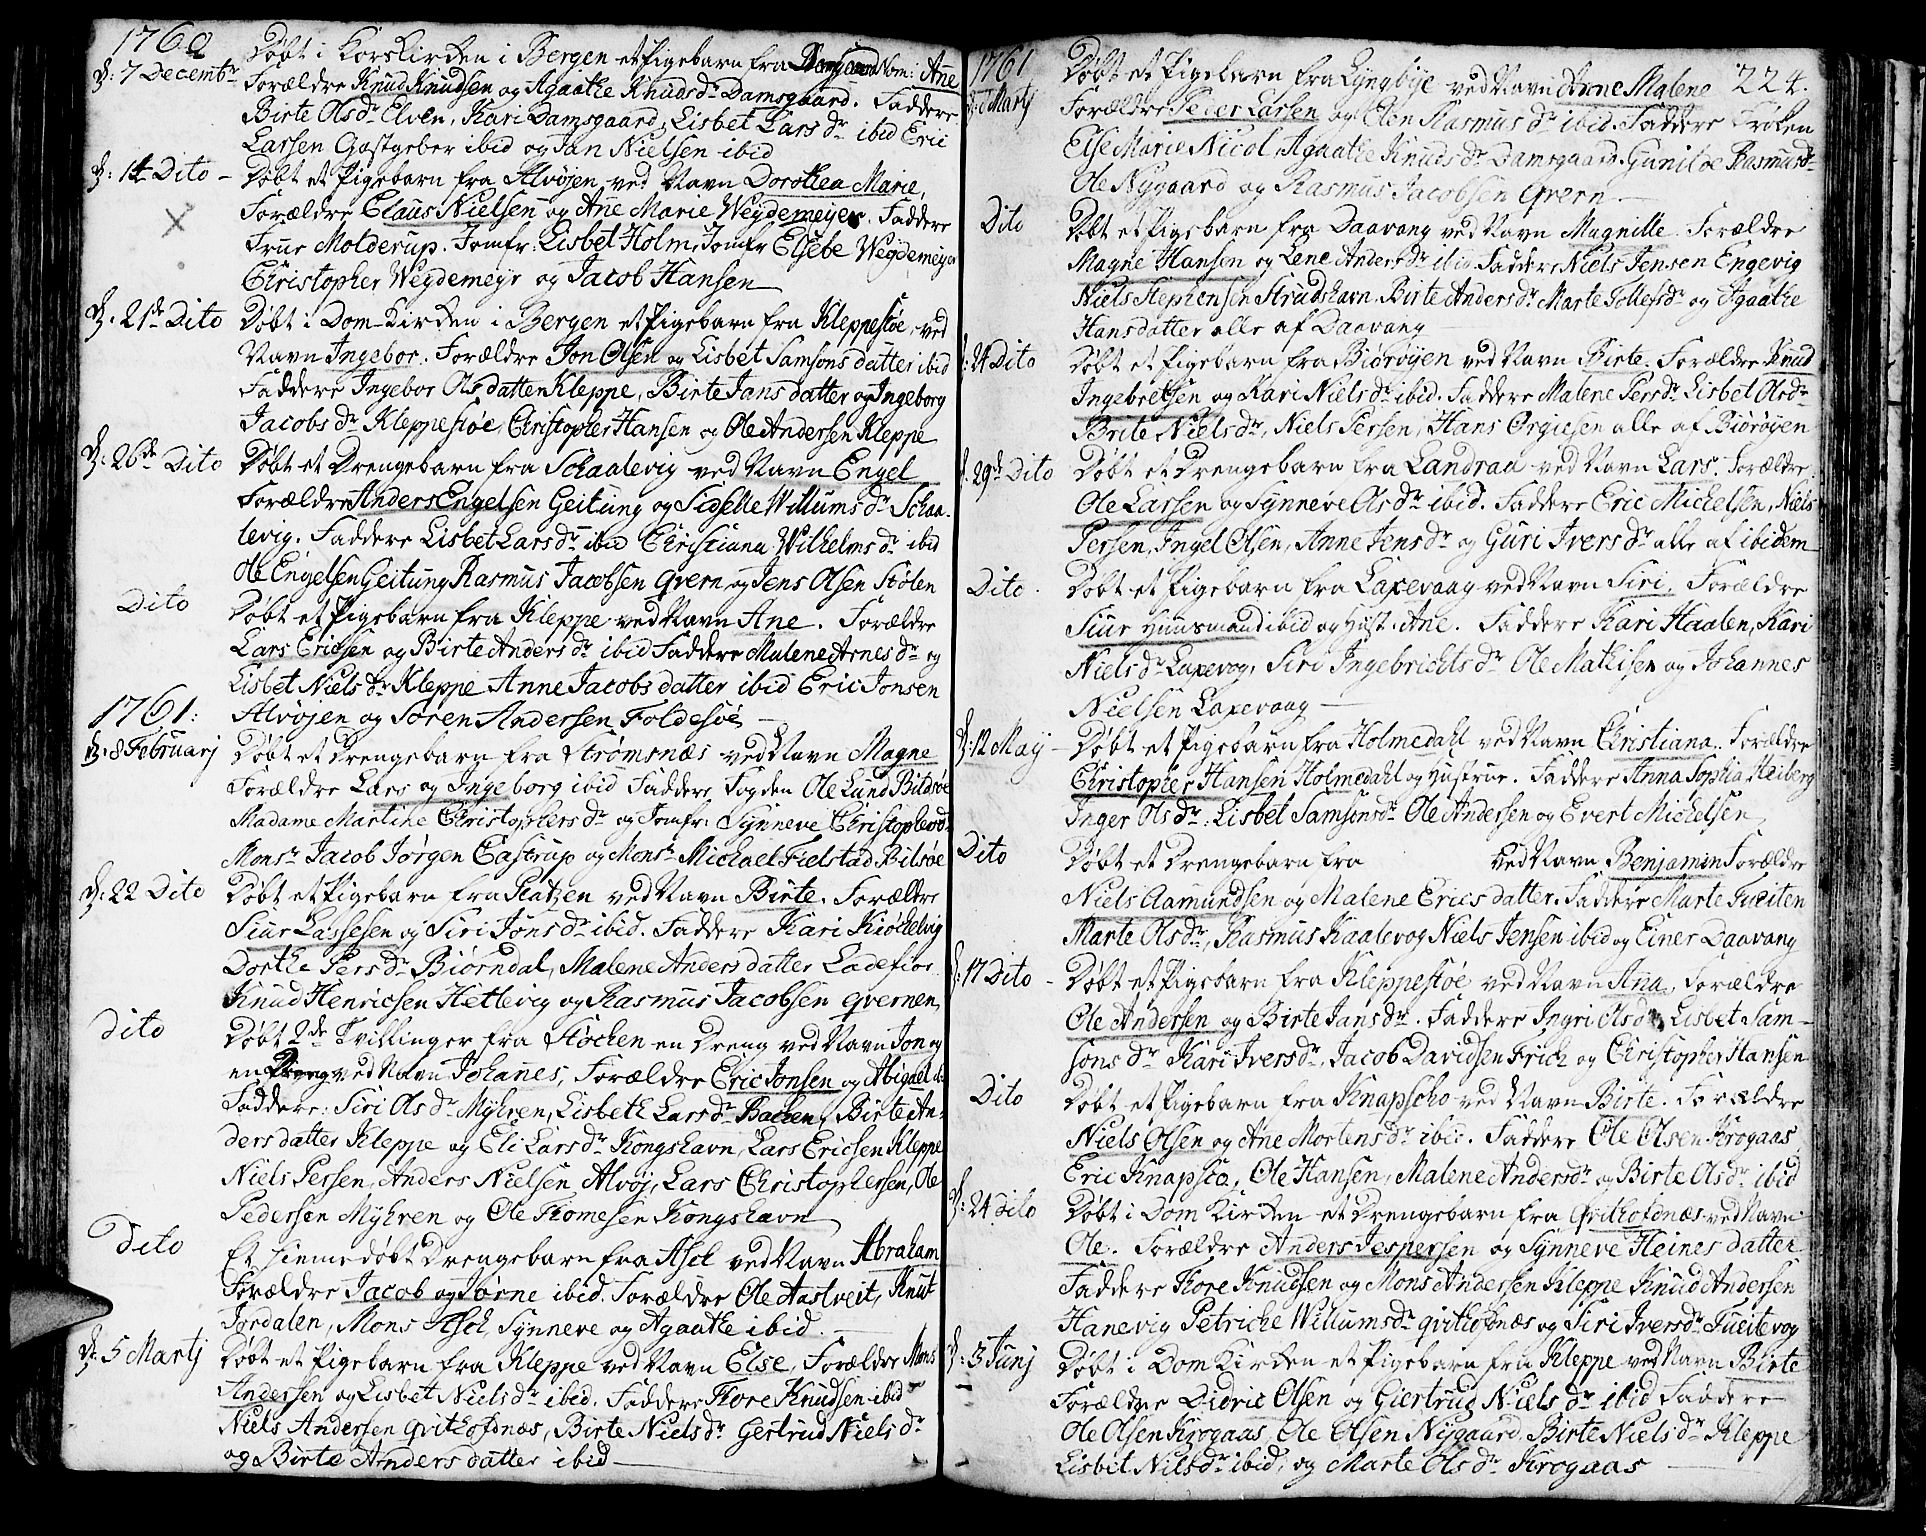 1760
d: 7 Decembr Døbt i KorsKirken i Bergen et Pigebarn fra Damgaard Nom: Ane
Forældre Knud Knudsen og Agaathe Knudsdr Damsgaard. Faddere
Birte Olsdr Elven, Kari Damsgaard, Lisbet Lars dr ibid Eric
Larsen Gastgeber ibid og Jan Nielsen ibid
d: 14 Dito – Døbt et Pigebarn fra Alvøjen ved Navn Dorothea Marie,
Forældre Claus Nielsen og Ane Marie Weydemeyer. Faddere
Frue Molderup. Jomfr: Lisbet Holm, Jomfr Elsebe Weydemeyer
Christopher Weydemeyr og Jacob Hansen
d. 21de Dito Døbt i Dom-Kirken i Bergen et Pigebarn fra Kleppesøe, ved
Navn Ingebor. Forældre Jon Olsen og Lisbet Samsons datter ibid
Faddere Ingebor Olsdatter Kleppe, Birte Jans datter og Ingeborg
Jacobs dr Kleppesøe, Christopher Hansen og Ole Andersen Kleppe
d: 26de Dito Døbt et Drengebarn fra Schaalevig ved Navn Engel
Forældre Anders Engelsen Geitung og Sidselle Willums dr Schaa-
levig. Faddere Lisbet Lars dr ibid Christiana Wilhelms dr ibid
Ole Engelsen Geitung Rasmus Jacobsen Qvern og Jens Olsen Stølen
Dito Døbt et Pigebarn fra Kleppe ved Navn Ane. Forældre
Lars Ericsen og Birte Anders dr ibid Faddere Malene Arnes dr og
Lisbet Niels dr Kleppe Anne Jacobs datter ibid Eric Jonsen
1761: Alvøjen og Søren Andersen Foldesøe
d: 8 Februarj Døbt et Drengebarn fra Strømsnæs ved Navn Magne
Forældre Lars og Ingeborg ibid Faddere Fogden Ole Lund Bildsøe
Madame Martine Christophers dr og Jomfr: Synneve Christophersd
Monsr Jacob Jørgen Castrup og Monsr Michael Fielstad Bilsøe
d: 22 Dito Døbt et Pigebarn fra Platzen ved Navn Birte. Forældre
Siur Lassesen og Siri Jons dr ibid. Faddere Kari Kiøkelvig
Dorthe Pers dr Biørndal, Malene Anders datter Ladefior
Knud Henricsen Hettevig og Rasmus Jacobsen Qvernen,
Dito Døbt 2de Tvillinger fra Støchen en Dreng ved Navn Jon og
en Dreng ved Navn Johanes, Forældre Eric Jonsen og Abigael
Faddere: Siri Ols dr Myhren, Lisbeth Lars dr Bachen, Birte An-
ders datter Kleppe og Eli Lars dr Kongshavn, Lars Ericsen Kleppe
Niels Persen, Anders Nielsen Alvøj, Lars Christophersen, Ole
Pedersen Myhren og Ole Thomesen Kongshavn
Dito Et hiemmedøbt Drengebarn fra Ask ved Navn Abraham
Forældre Jacob og Jørne ibid. Forældre Ole Aastveit, Knut
Jordalen, Mons Ask, Synneve og Agaathe ibid.
d. 5 Martj Døbt et Pigebarn fra Kleppe ved Navn Else, Forældre Mons
Andersen og Lisbet Niels dr ibid. Faddere Tore Knudsen ibid
Niels Andersen Qvithofdnæs, Birte Niels dr Gertrud Niels dr
og Birte Anders datter ibid
1761 Døbt et Pigebarn fra Lyngbye ved Navn Anne Malene 224.
Martj Forældre Peter Larsen og Elen Rasmus dr ibid. Faddere Frøken
Else Marie Nicol, Agaathe Knuds dr Damsgaard, Gunilde Rasmusd
Ole Nygaard og Rasmus Jacobsen Qvern
Dito Døbt et Pigebarn fra Daavang ved Navn Magnille. Forældre
Magne Hansen og Lene Anders dr ibid Faddere Niels Jensen Engevig
Niels Stephensen Strudshavn, Birte Anders dr Marte Tollefs dr og Agaathe
Hansdatter alle af Daavang
d: 24 Dito Døbt et Pigebarn fra Biørøyen ved Navn Birte. Forældre Knud
Ingebretsen og Kari Niels dr ibid. Faddere Malene Pers dr Lisbet Olsdr
Brite Niels dr, Niels Persen, Hans Ørgiesen alle af Biørøyen
d. 29de Dito Døbt et Drengebarn fra Landraa ved Navn Lars. Forældre
Ole Larsen og Synneve Ols dr ibid. Faddere Eric Michelsen, Niels
Persen, Ingel Olsen, Anne Jens dr og Guri Ivers dr alle af ibidem
Dito. Døbt et Pigebarn fra Laxevaag ved Navn Siri, Forældre
Siur Huusmand ibid og Hust. Ane. Faddere Kari Haalen, Kari
Niels dr Laxevog, Siri Ingebrichts dr Ole Mathisen og Johannes
Nielsen Laxevaag
d: 12 Maij – Døbt et Pigebarn fra Holmedahl ved Navn Christiana. Forældre
Christopher Hansen Holmedahl og Hustrue. Faddere Anna Sophia Heiberg
Inger Ols dr. Lisbet Samsonsdr Ole Andersen og Evert Michelsen
Dito Døbt et Drengebarn fra ved Navn Benjamin Forældre
Niels Aamundsen og Malene Erics datter. Faddere Marte Tueiten
Marte Ols dr, Rasmus Kaalevog Niels Jensen ibid og Einer Daavang
d: 17 Dito – Døbt et Pigebarn fra Kleppesøe ved Navn Ana, Forældre
Ole Andersen og Birte Jans dr. Faddere Ingri Olsdr, Lisbet Sam-
sons dr Kari Ivers dr, Jacob Davidsen Frich og Christopher Hansen
Dito Døbt et Pigebarn fra Knapscho ved Navn Birte. Forældre
Niels Olsen og Ane Mortens dr ibid. Faddere Ole Olsen Krogaas
Eric Knapsco, Ole Hansen, Malene Andersdr og Birte Ols dr ibid
d: 24 Dito Døbt i Dom Kirken et Drengebarn fra Qvithofdnæs ved Navn
Ole. Forældre Anders Jespersen og Synneve Heines datter
Faddere Tore Knudsen og Mons Andersen Kleppe Knud Andersen
Hanevig Petriche Willums dr Qvithofdnæs og Siri Ivers dr Tueitevog
d: 3 Junj Døbt i Dom Kirken et Pigebarn fra Kleppe ved Navn Birte
Forældre Didric Olsen og Giertrug Niels dr ibid Faddere
Ole Olsen Krogaas, Ole Olsen Nygaard Birte Niels dr Kleppe
Lisbet Nilsdr ibid, og Marte Ols dr Krogaas